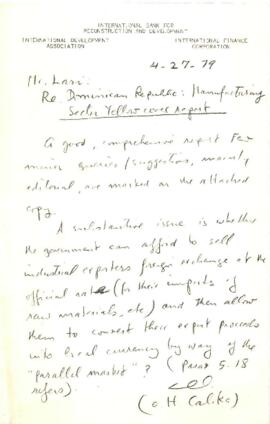 INTERNATIONAL BANK FOR
RECONSTRUCTION AND DEVELOPMENT
INTERNATIONAL DEVELOPMENT INTERNATIONAL FINANCE
ASSOCIATION CORPORATION
4-27-79
Mr. Lari:
Re. Dominican Republic: Manufacturing
Sector Yellow cover report
A good, comprehensive report. Few
minor queries/suggestions, mainly
editorial, are marked on the attached
copy.
A substantive issue is whether
the government can afford to sell
industrial exporters foreign exchange at the
official rate (for their imports of
raw materials, etc) and then allow
them to convert their export proceeds
into local currency by way of the
"parallel market"? (para 5.18
refers).
(O H Calika)